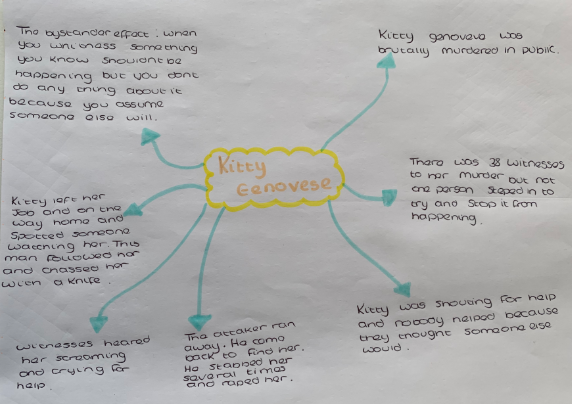 The bystander effect : when
you whitness something
you know shouldnt be
happening but you dont
do any thing about it
because you assume
someone else will.
Kitty genoveve was
brutally murdered in public.
Kitty
Genovese
There was 38 witnesses
to her murder but not
one person steped in to
try and stop it from
happening.
Kitty left her
Job and on the
way home and
spotted someone
watching her. This
man followed her
and chassed her
with a knife.
witnesses heared
her screaming
and crying for
help.
The attaker ran
away. He come
back to find her.
He stabbed her
several times
and raped her.
Kitty was shouting for help
and nobody helped because
they thought someone else
would.